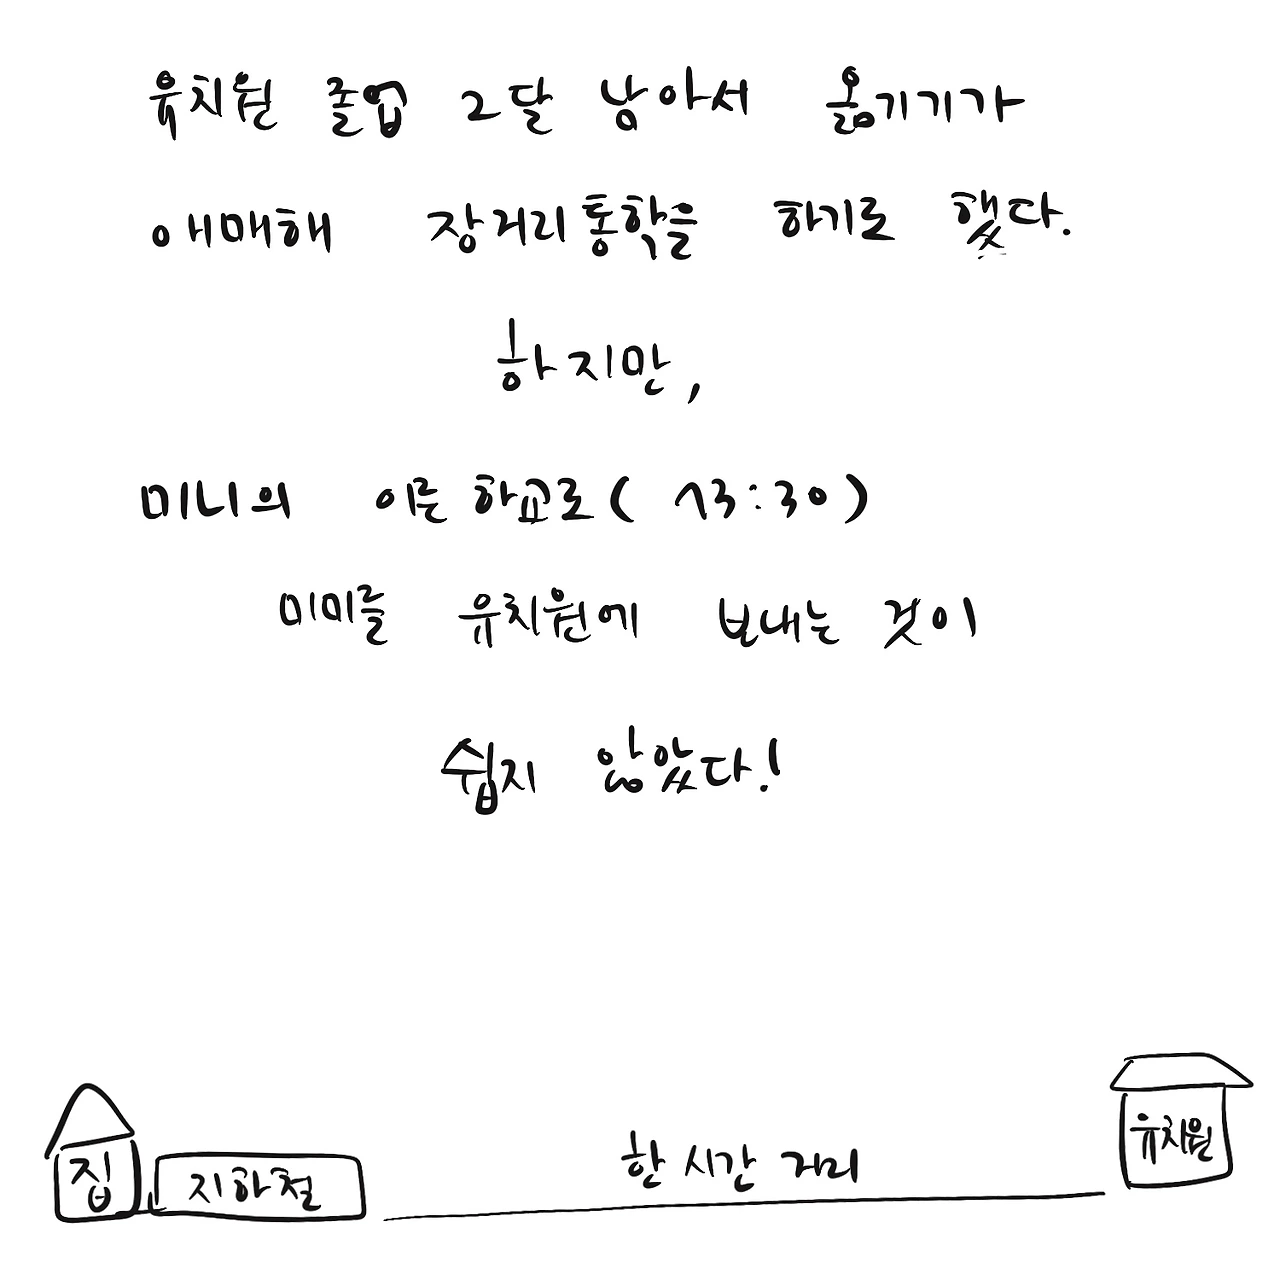 유치원 졸업 2달 남아서 옮기기가
애매해 장거리통학을 하기로 했다.
하지만,
미니의 이른 하교로( 13:30)
미미를 유치원에 보내는 것이
쉽지 않았다!
집
지하철
한 시간 거리
유치원